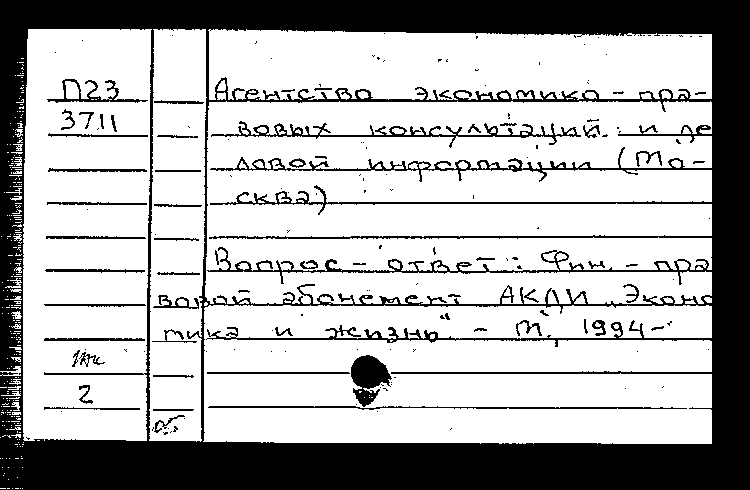 П23
3711
Агентство экономико-пра-
вовых консультаций и де
ловой информации (Мо-
сква)
Вопрос-ответ: Фин.-пра
вовой абонемент АКДИ „Эконо
мика и жизнь" - М., 1994-
2